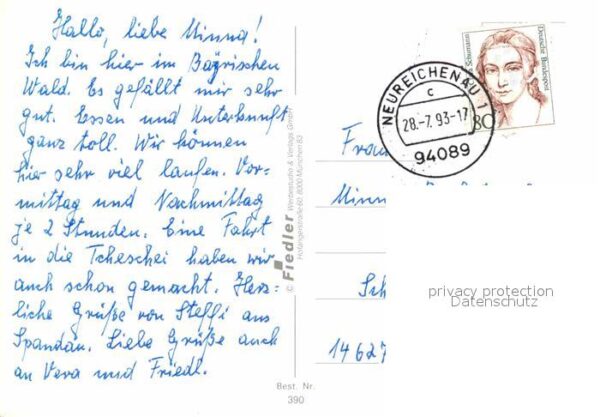 Hallo, liebe Minna!
Ich bin hier im Bayrischen
Wald. Es gefällt mir sehr
gut. Essen und Unterkunft
ganz toll. Wir können
hier sehr viel laufen. Vor-
mittag und Nachmittag
je 2 Stunden. Eine Fahrt
in die Tscheschei haben wir
auch schon gemacht. Herz-
liche Grüße von Steffi aus
Spandau. Liebe Grüße auch
an Vera und Friedl.
© Fiedler Werbestudio & Verlags GmbH
Hofangerstraße 60, 8000 München 83
Best. Nr.
390
Schumann
Deutsche Bundespost
80
NEUREICHENAU 1
c
28.-7. 93-17
94089
Frau
Minn
Sch
14627
privacy protection
Datenschutz